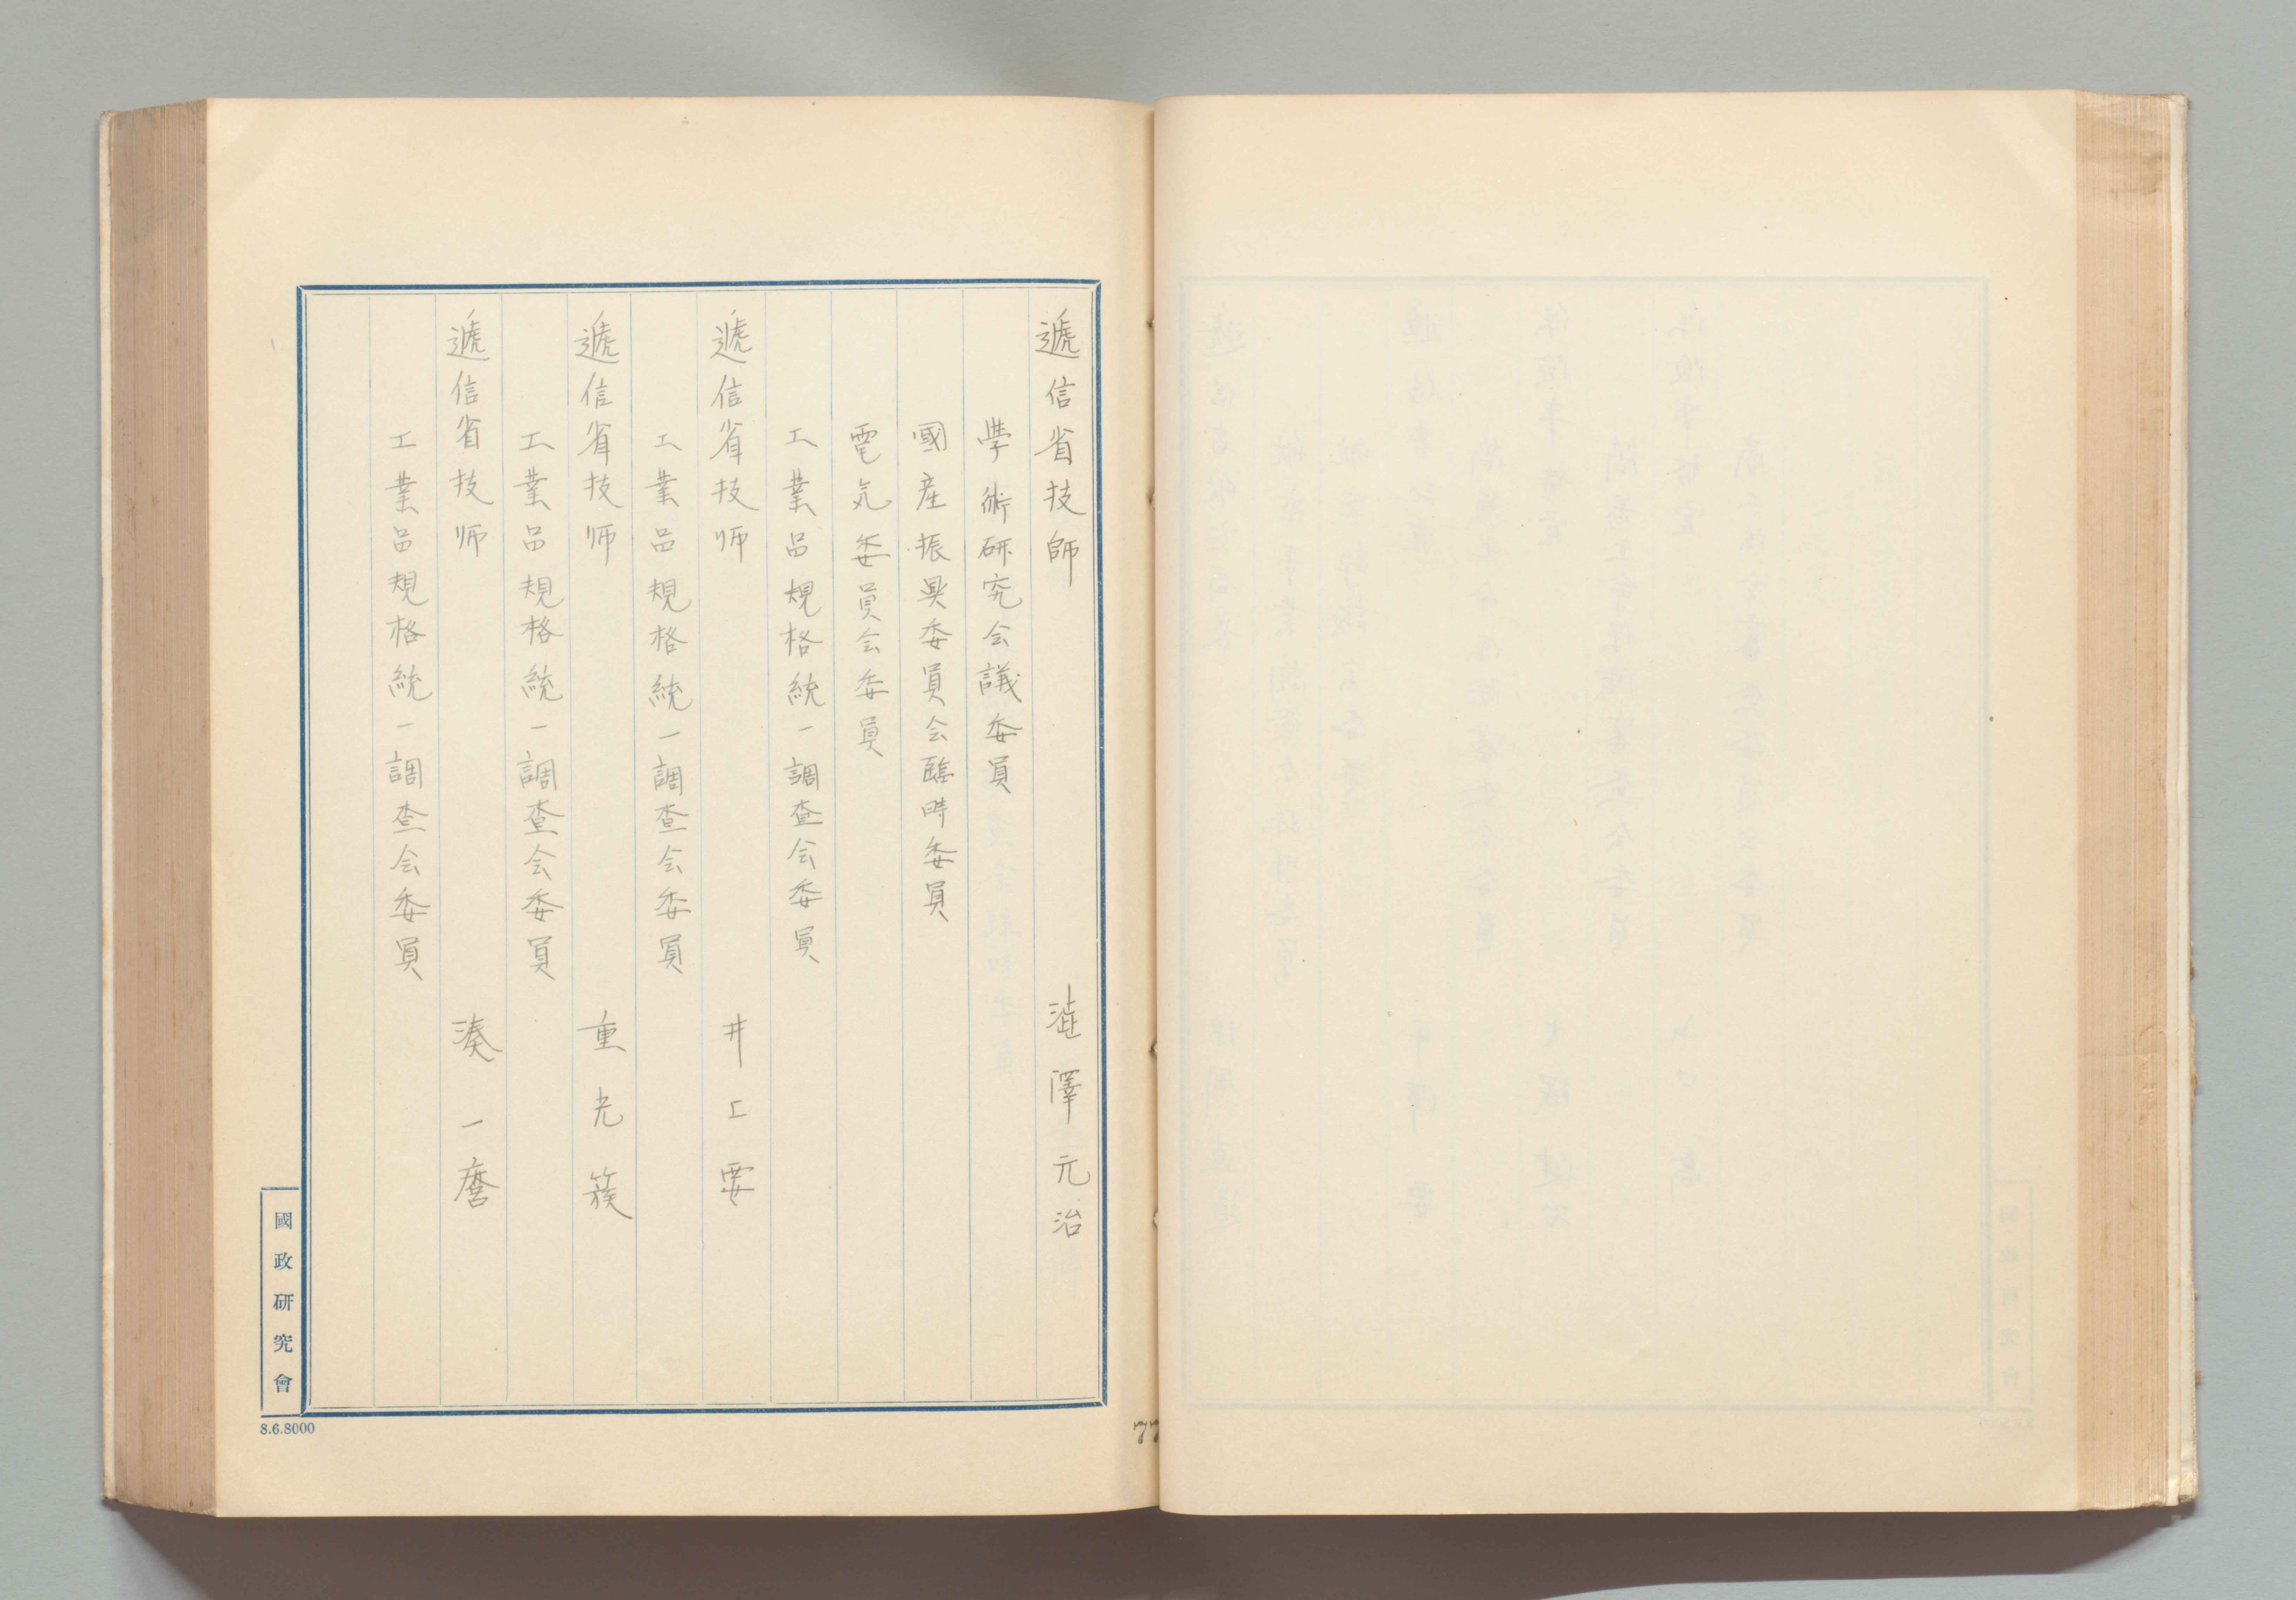 遞信省技師 澁澤元治
學術研究会議委員
國産振興委員会臨時委員
電気委員会委員
工業品規格統一調査会委員
遞信省技师 井上要
工業品規格統一調査会委員
遞信省技师 重光簇
工業品規格統一調査会委員
遞信省技师 湊一磨
工業品規格統一調査会委員
國政研究會
8.6.8000
77